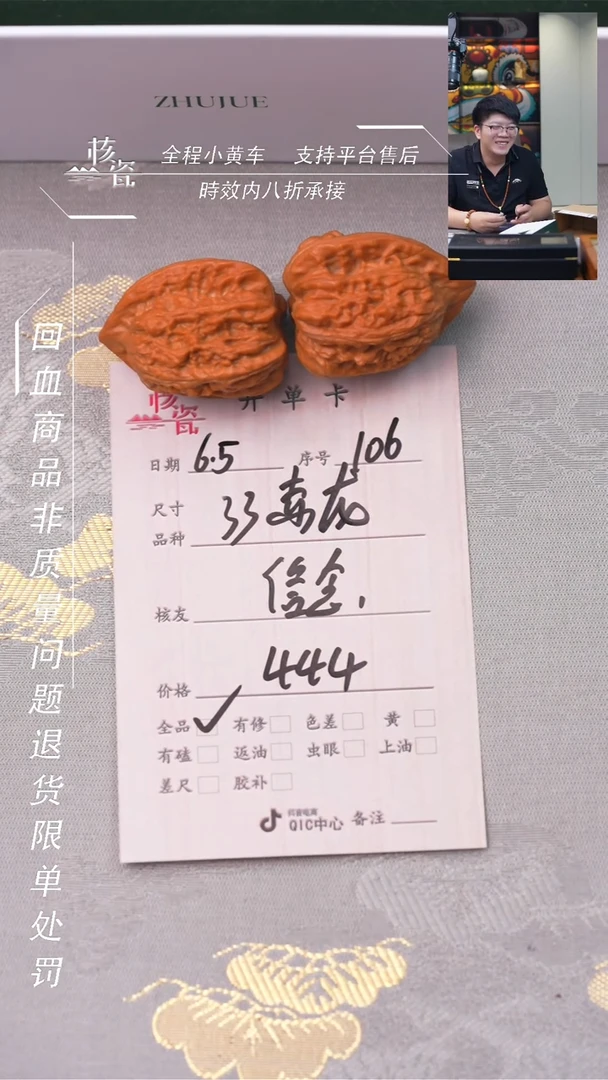 ZHUJUE
核瓷
全程小黄车 支持平台售后
時效内八折承接
回血商品非质量问题退货限单处罚
核瓷
开单卡
日期 6.5 序号 106
尺寸
品种 33
核友 信念
价格 444
全品 ✓ 有修 色差 黄
有磕 返油 虫眼 上油
差尺 胶补
抖音电商
QIC中心 备注